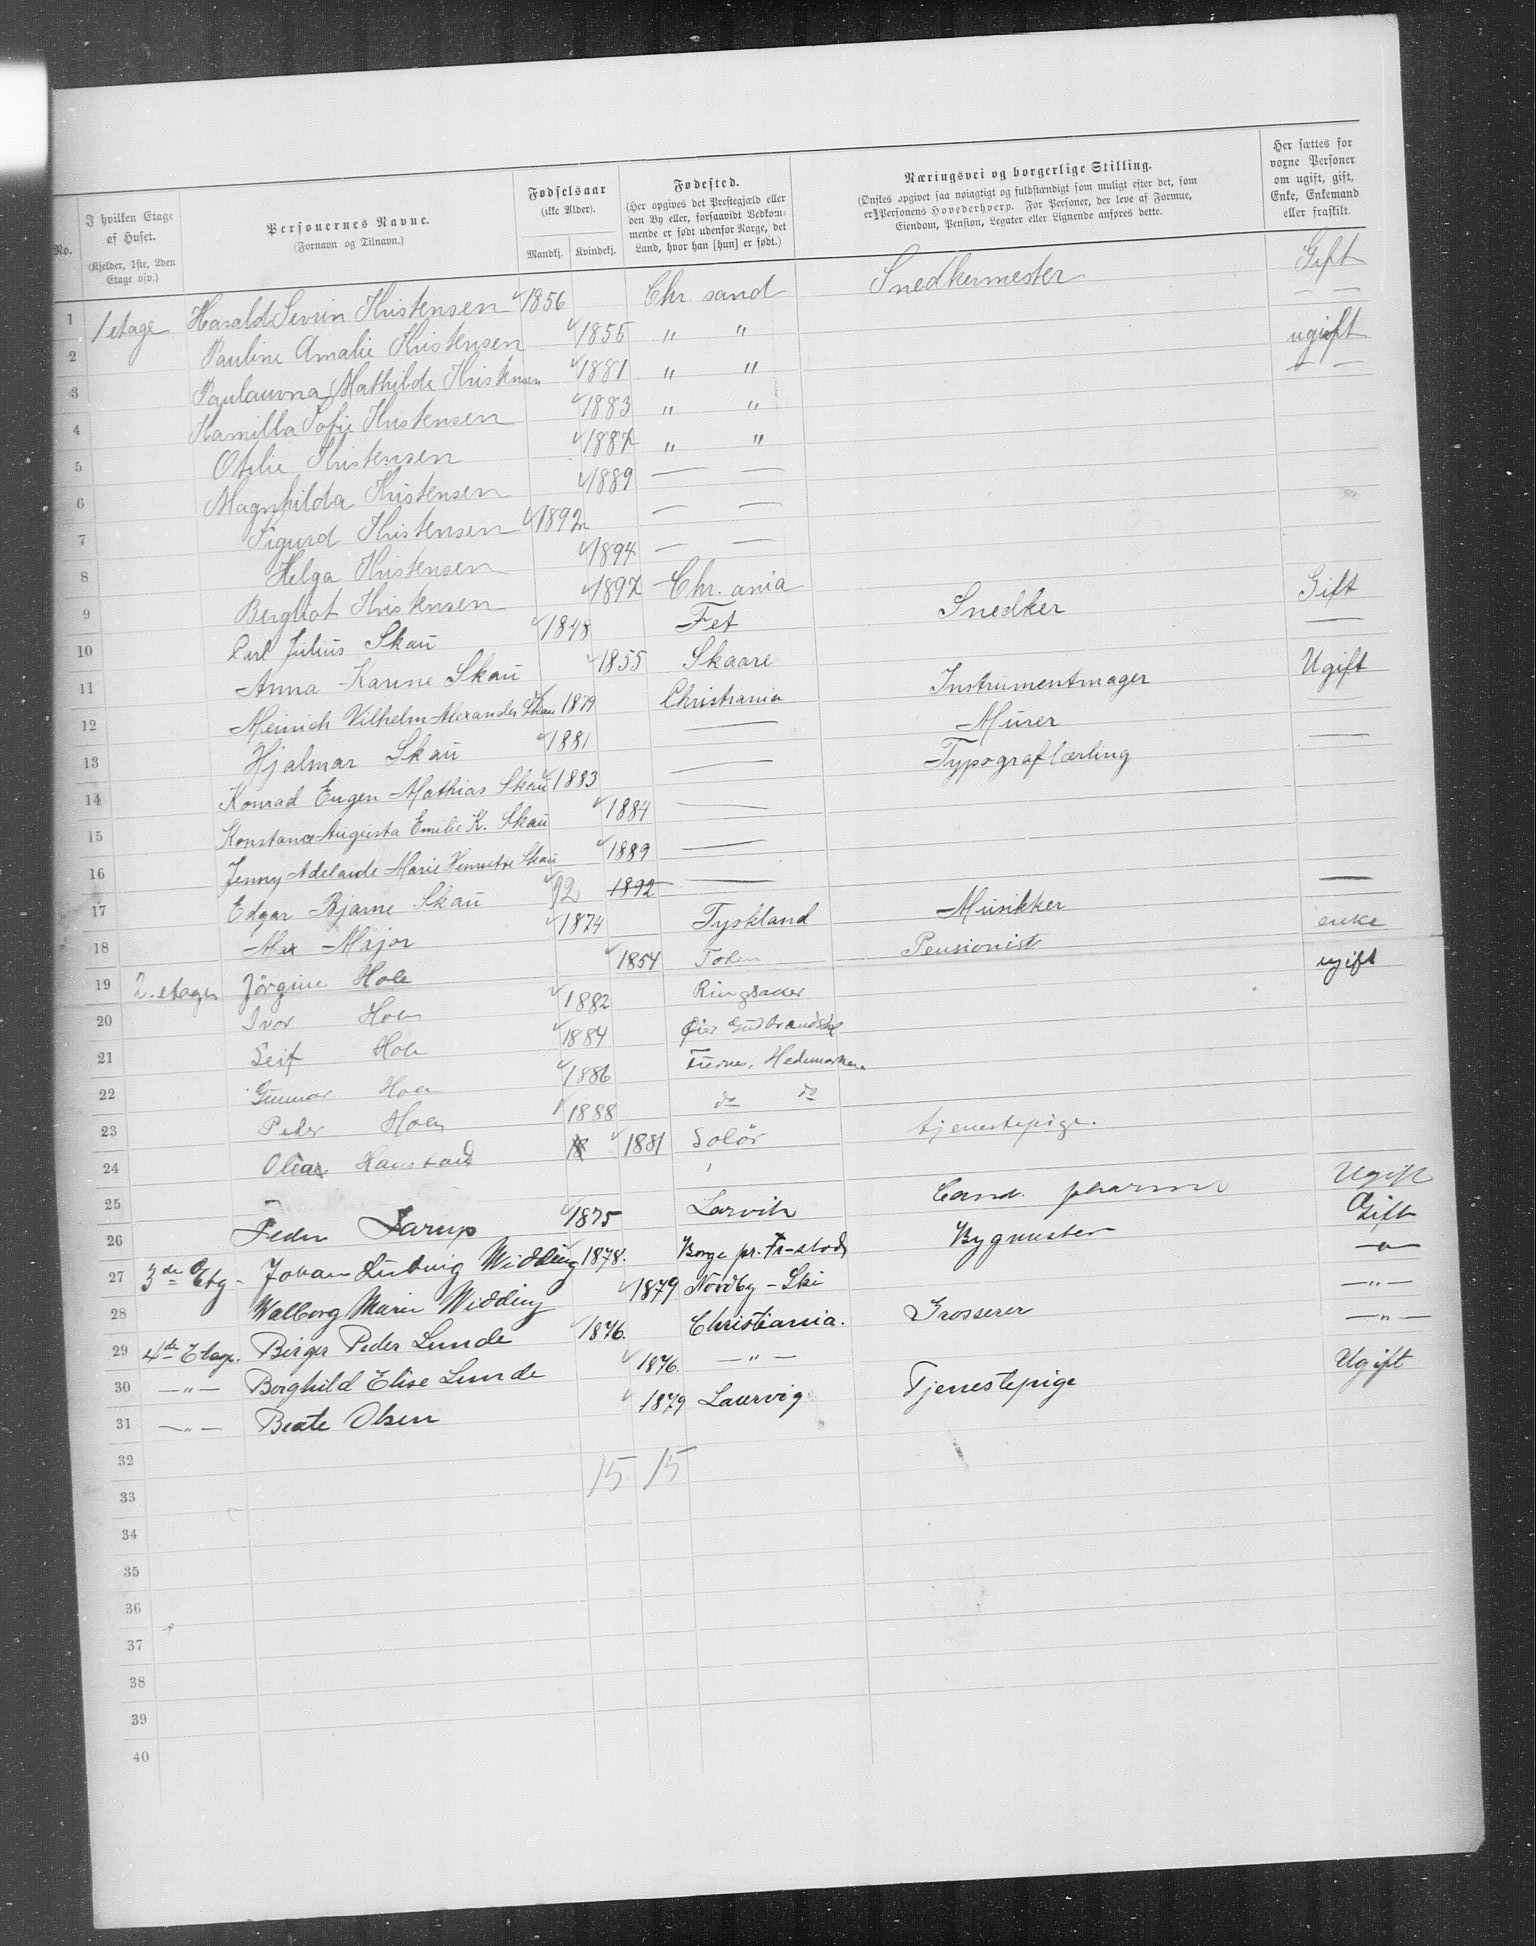 No. I hvilken Etage af Huset. (Kjelder, 1ste, 2den Etage osv.) Personernes Navne. (Fornavn og Tilnavn.) Fødselsaar (ikke Alder). Mandkj. Kvindekj. Fødested. (Her opgives det Prestegjæld eller den By eller, forsaavidt Vedkommende er født udenfor Norge, det Land, hvor han [hun] er født.) Næringsvei og borgerlige Stilling. (Ønskes opgivet saa nøiagtigt og fuldstændigt som muligt efter det, som er Personens Hovederhverv. For Personer, der leve af Formue, Eiendom, Pension, Legater eller Lignende anføres dette. Her sættes for voxne Personer om ugift, gift, Enke, Enkemand eller fraskilt.
1 1 etage Harald Sevrin Kristensen 1856 Chr sand Snedkermester Gift
2 Pauline Amalie Kristensen 1855 " " — —
3 Mathilde Kristensen 1881 " " ugift
4 Kamilla Sofie Kristensen 1883 " " — —
5 Otilie Kristensen 1887 " "
6 Magnhilda Kristensen 1889 — —
7 Sigurd Kristensen 1892 — —
8 Helga Kristensen 1894 — —
9 Bergliot Kristensen 1897 Chr. ania
10 Carl Julius Skau 1848 Fet Snedker Gift
11 Anna Karine Skau 1855 Skaare —
12 Meinich Vilhelm Alexander Skau 1879 Christiania Instrumentmager Ugift
13 Hjalmar Skau 1881 — Murer —
14 Konrad Eugen Mathias Skau 1883 — Typograflærling —
15 Konstance Augusta Emilie K. Skau 1884 —
16 Jenny Adelaide Marie Henriette Skau 1889 —
17 Edgar Bjarne Skau 92 1892 —
18 Max Major 1874 Tyskland Musikker —
19 2. etage Jörgine Hole 1854 Toten Pensionist enke
20 Ivor Hole 1882 Ringsaker ugift
21 Leif Hole 1884 Øier Gudbrandsdal
22 Gunnar Hole 1886 Furnes, Hedemarken
23 Peder Hole 1888 do do
24 Haustad 18 1881 Solör tjenestepige.
25
26 Peder Jarup 1875 Larvik Cand. pharm Ugift
27 3de Etg - Johan Ludvig Widding 1878. Borge pr. Fr-stad Bygmester Gift
28 Walborg Marie Widding 1879 Nordby - Ski —"—
29 4de Etage. Birger Peder Lunde 1876. Christiania. Grosserer —"—
30 —"— Borghild Elise Lunde 1876. —"— —"—
31 —"— Beate Olsen 1879 Laurvig Tjenestepige Ugift
32
33 15 15
34
35
36
37
38
39
40